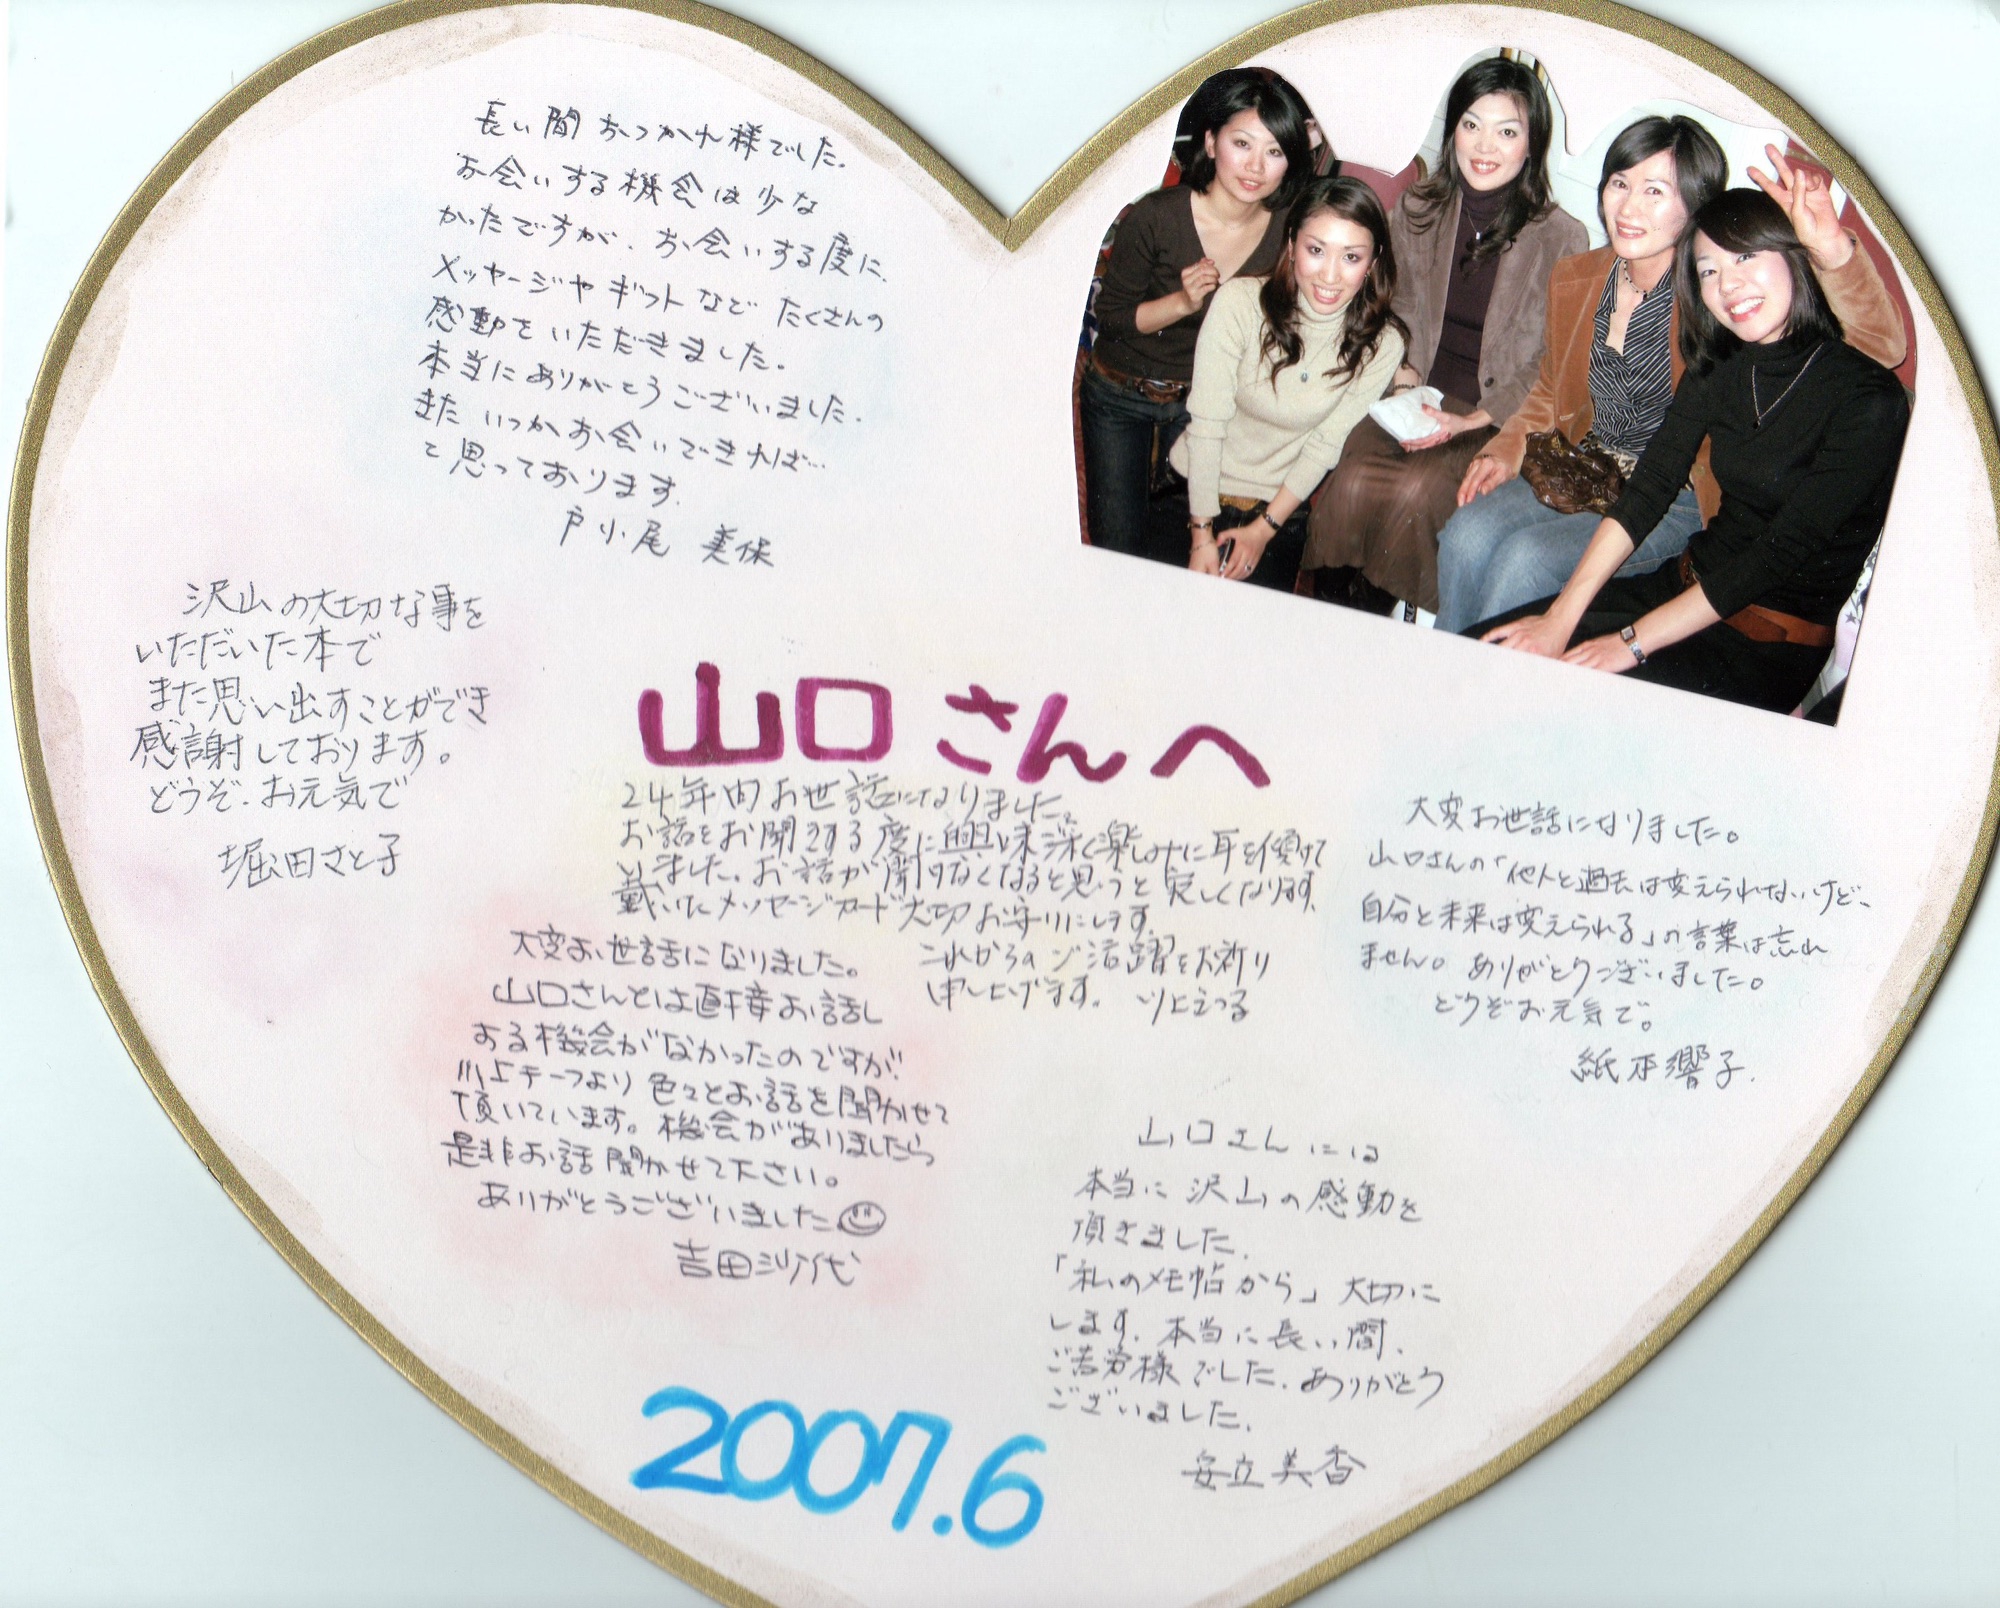 長い間おつかれ様でした。
お会いする機会は少な
かったですが、お会いする度に、
メッセージやギフトなどたくさんの
感動をいただきました。
本当にありがとうございました。
またいつかお会いできれば…
と思っております。
戸小尾 美保
沢山の大切な事を
いただいた本で
また思い出すことができ
感謝しております。
どうぞ、お元気で
堀田さと子
山口さんへ
24年間お世話になりました。
お話をお聞きする度に興味深く楽しみに耳を傾けて
いました。お話が聞けなくなると思うと寂しくなります。
戴いたメッセージカード大切お守りにします。
これからのご活躍をお祈り
申し上げます。
大変お世話になりました。
山口さんとは直接お話し
する機会がなかったのですが!!
川上チーフより色々とお話を聞かせて
頂いています。機会がありましたら
是非お話聞かせて下さい。
ありがとうございました
吉田沙代
大変お世話になりました。
山口さんの「他人と過去は変えられないけど、
自分と未来は変えられる」の言葉は忘れ
ません。ありがとうございました。
どうぞお元気で。
響子
山口さんには
本当に沢山の感動を
頂きました。
「私のメモ帖から」大切に
します。本当に長い間、
ご苦労様でした。ありがとう
ございました。
安立美香
2007.6